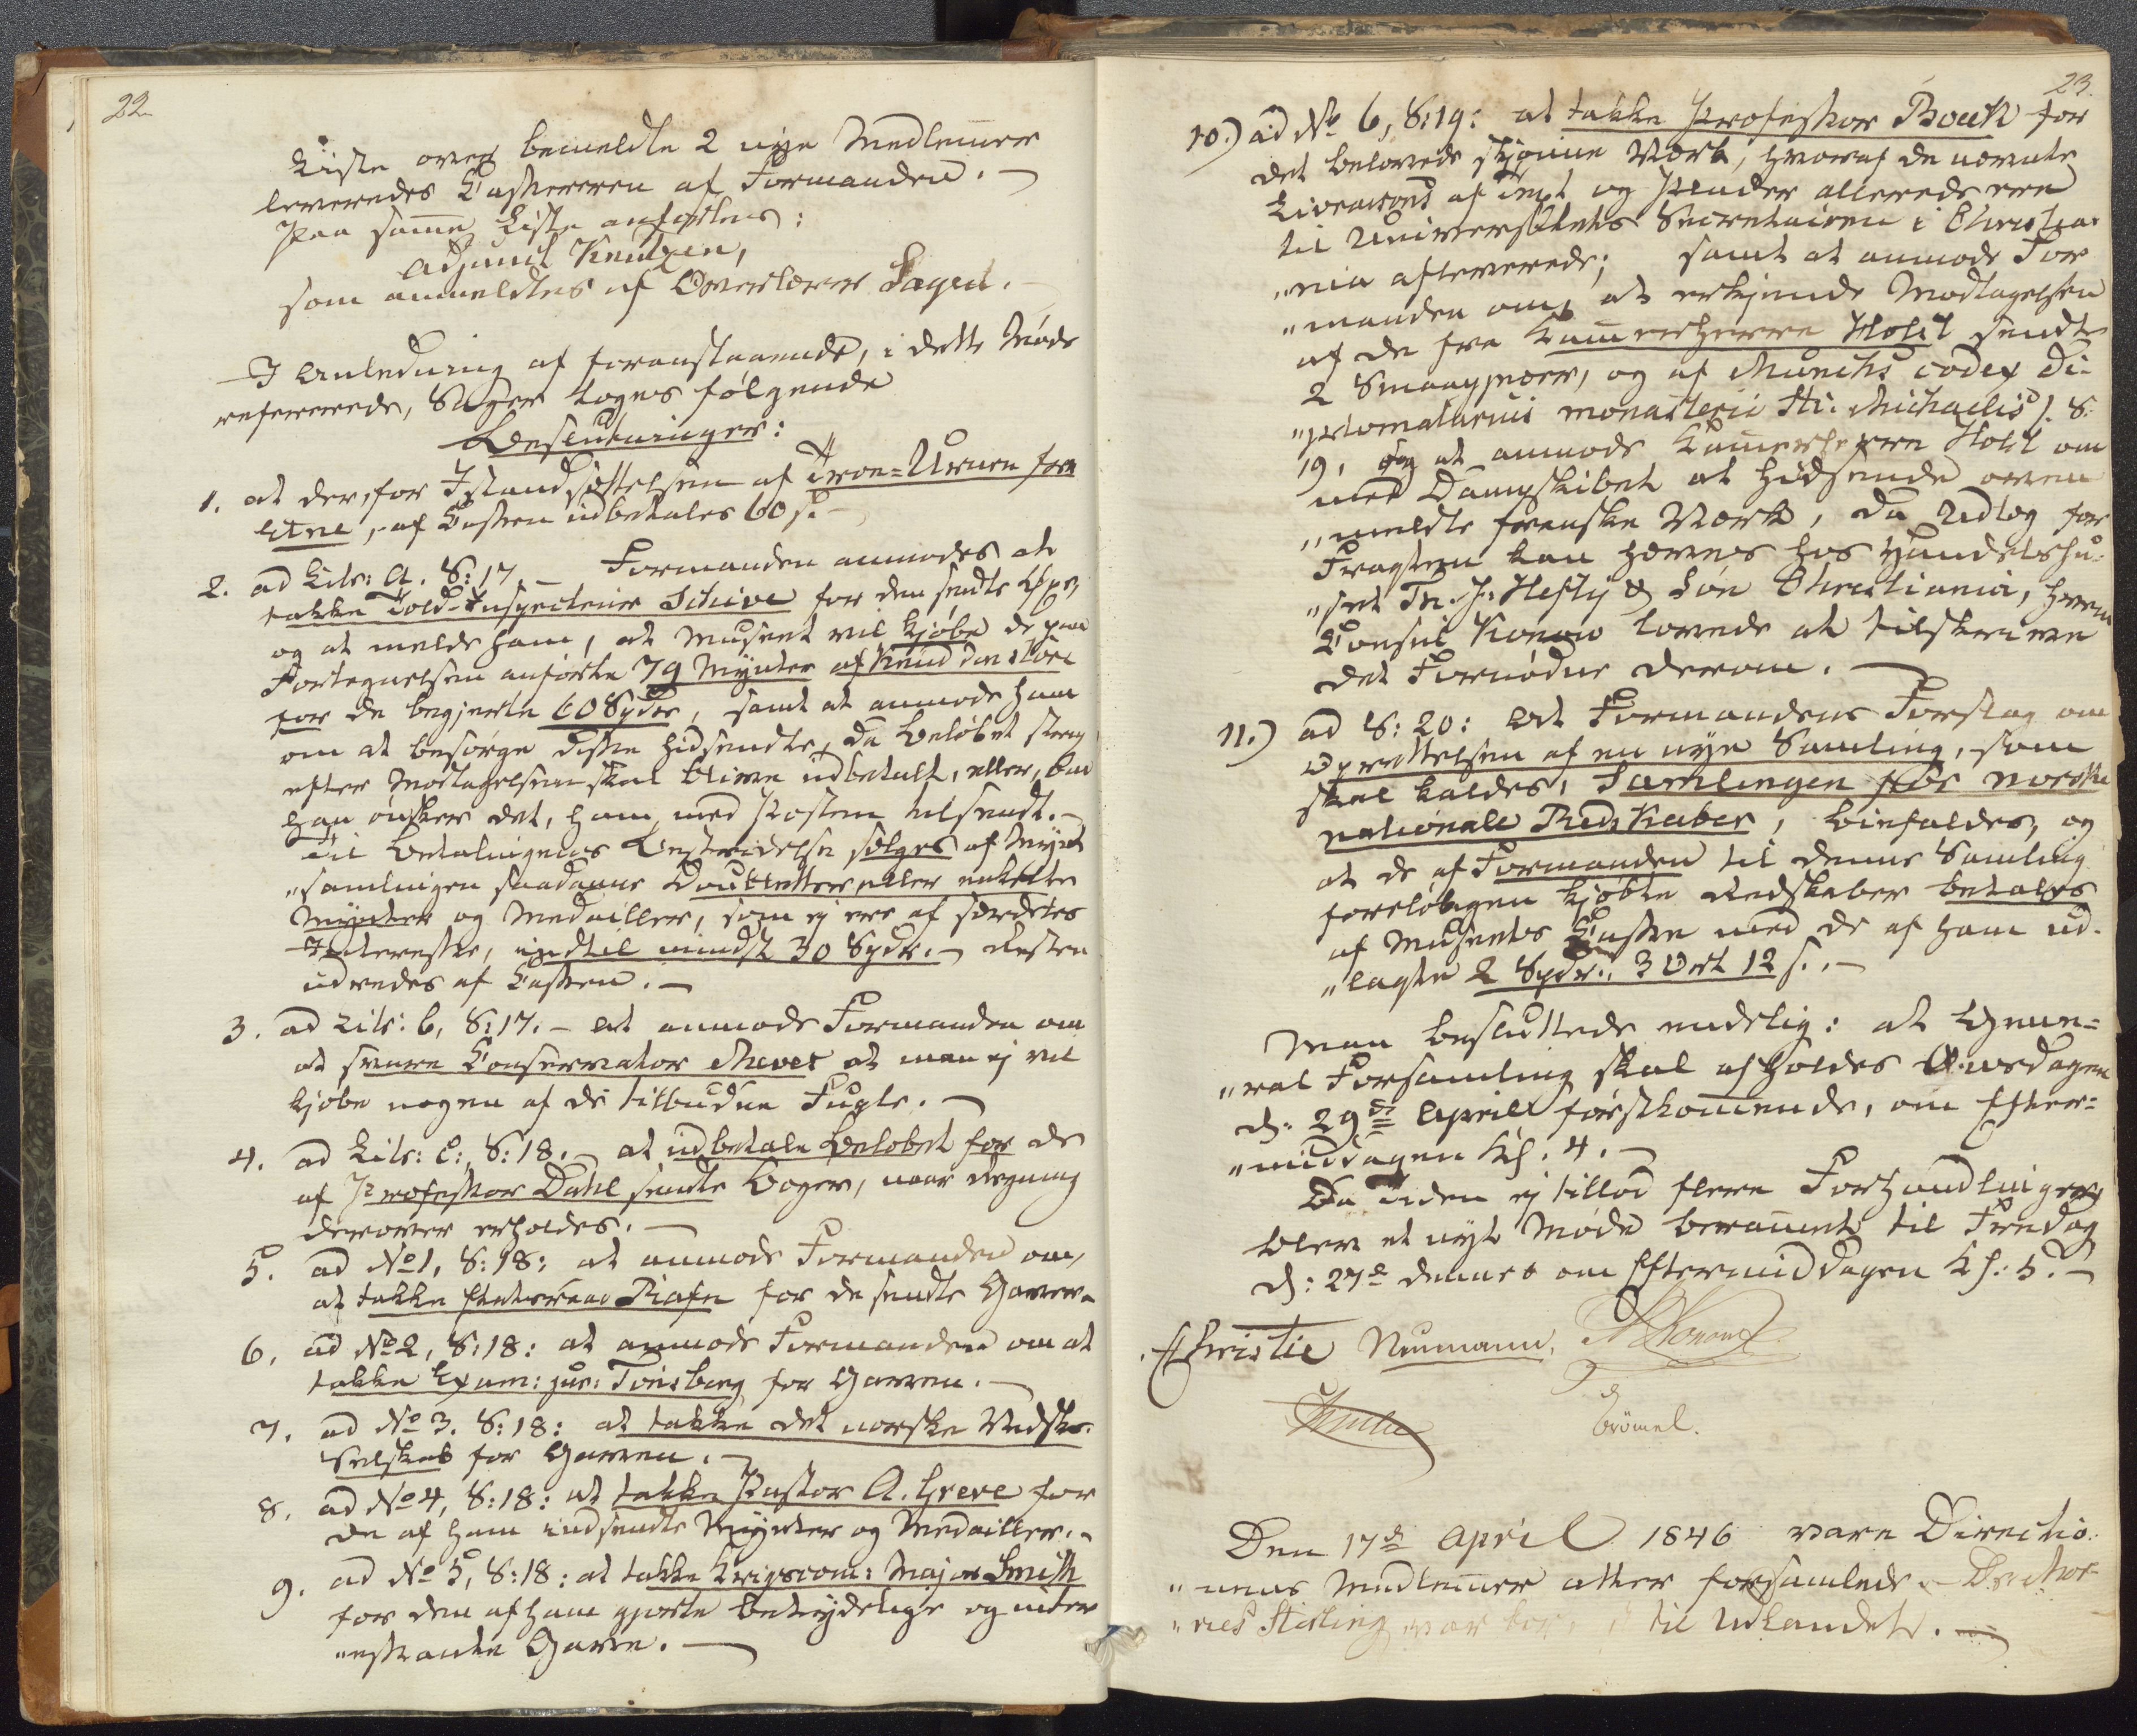 22.
Liste over bemeldte 2 nye Medlem̄er
leveredes Casskereren af Formanden. –
Paa sam̄e Liste anførtes:
Adjunct Knutzen,
som anmeldtes af Overlærer Sagen. –
I Anledning af foranstaaende, i dette Møde
refererede, Sager toges følgende
Beslutninger:
1. at der, for Istandsættelsen af Iron-Urnen fra
Etne, af Cassen udbetales 60 s. –
2. ad Litr: A. S: 17. – Formanden anmodes at
takke Told-Inspecteur Schive for den sendte
og at melde ham, at Museet vil kjøbe de paa
Fortegnelsen anførte 79 Mynter af Knud den store
for de begjerte 60 Spdlr, samt at anmode ham
om at besørge disse hidsendte, da Beløbet strax
efter Modtagelsen skal blive udbetalt, eller, om
han ønsker det, ham med Posten tilsendt. –
Til Betalingens Bestridelse sælges af Mynt
"samlingen saadanne Doubletter eller enkelte
Mynter og Medailler, som ej ere af særdeles
Interesse, indtil mindst 30 Spdlr. – Resten
udredes af Cassen. –
3. ad Litr: b, S: 17. – At anmode Formanden om
at svare Conservator Meves at man ej vil
kjøbe nogen af de tilbudne Fugle. –
4. ad Litr: C:, S: 18. – at udbetale Beløbet for de
af Professor Dahl sendte Bøger, naar Regning
derover erholdes. –
5. ad No 1, S: 18: at anmode Formanden om,
at takke Etatsraad Rafn for de sendte Gaver. –
6. ad No 2, S: 18: at anmode Formanden om at
takke Exam: jur: Tönsberg for Gaven. –
7. ad No 3. S: 18: at takke det norske Vidsk.
Selskab for Gaven. –
8. ad No 4, S: 18: at takke Pastor A. Greve for
de af ham indsendte Mynter og Medailler. –
9. ad No 5, S: 18: at takke Krigscom: Major Smith
for den af ham gjorte betydelige og inter
"essante Gave. –
23.
10.) ad No 6, S: 19: at takke Professor Boeck for
det belovede skjønne Værk, hvoraf de nævnte
af Text og Plader allerede ere
til Universitets Secretairen i Christia-
"nia afleverede; samt at anmode For
"manden om, at erkjende Modtagelsen
af de fra Kam̄erherre Holst sendte
2 Smaapiecer, og af Munchs codex di-
"plomatarius monasterii Sti. Michaelis S:
19, og at anmode Kam̄erherre Holst om
med Dampskibet at hidsende oven
"meldte franske Værk, da Udlæg for
Fragten kan hæves hos Handelshu-
"set Th. J. Heftÿ & Søn Christiania, hvem
Consul Konow lovede at tilskrive
det Fornødne derom. –
11.) ad S: 20: At Formandens Forslag om
Oprettelsen af en nye Samling, som
skal kaldes, Samlingen for norske
nationale Redskaber, bifaldes, og
at de af Formanden til denne Samling
foreløbigen kjøbte Redskaber betales
af Museets Casse med de af ham ud-
"lagte 2 Spdr: 3 Ort 12 s. –
Man besluttede endelig: at Gene-
"ral Forsamling skal afholdes Onsdagen
d: 29de April førstkom̄ende, om Efter-
"middagen Kl. 4. –
Da Tiden ej tillod flere Forhandlinger,
blev et nyt Møde beram̄et til Fredag
d: 27de dennes om Eftermiddagen Kl: 5. –
Christie Neumann. Konow
Brömel.
Den 17de April 1846 vare Directio-
"nens Medlem̄er atter forsamlede. –
Stirling var til Udlandet. –